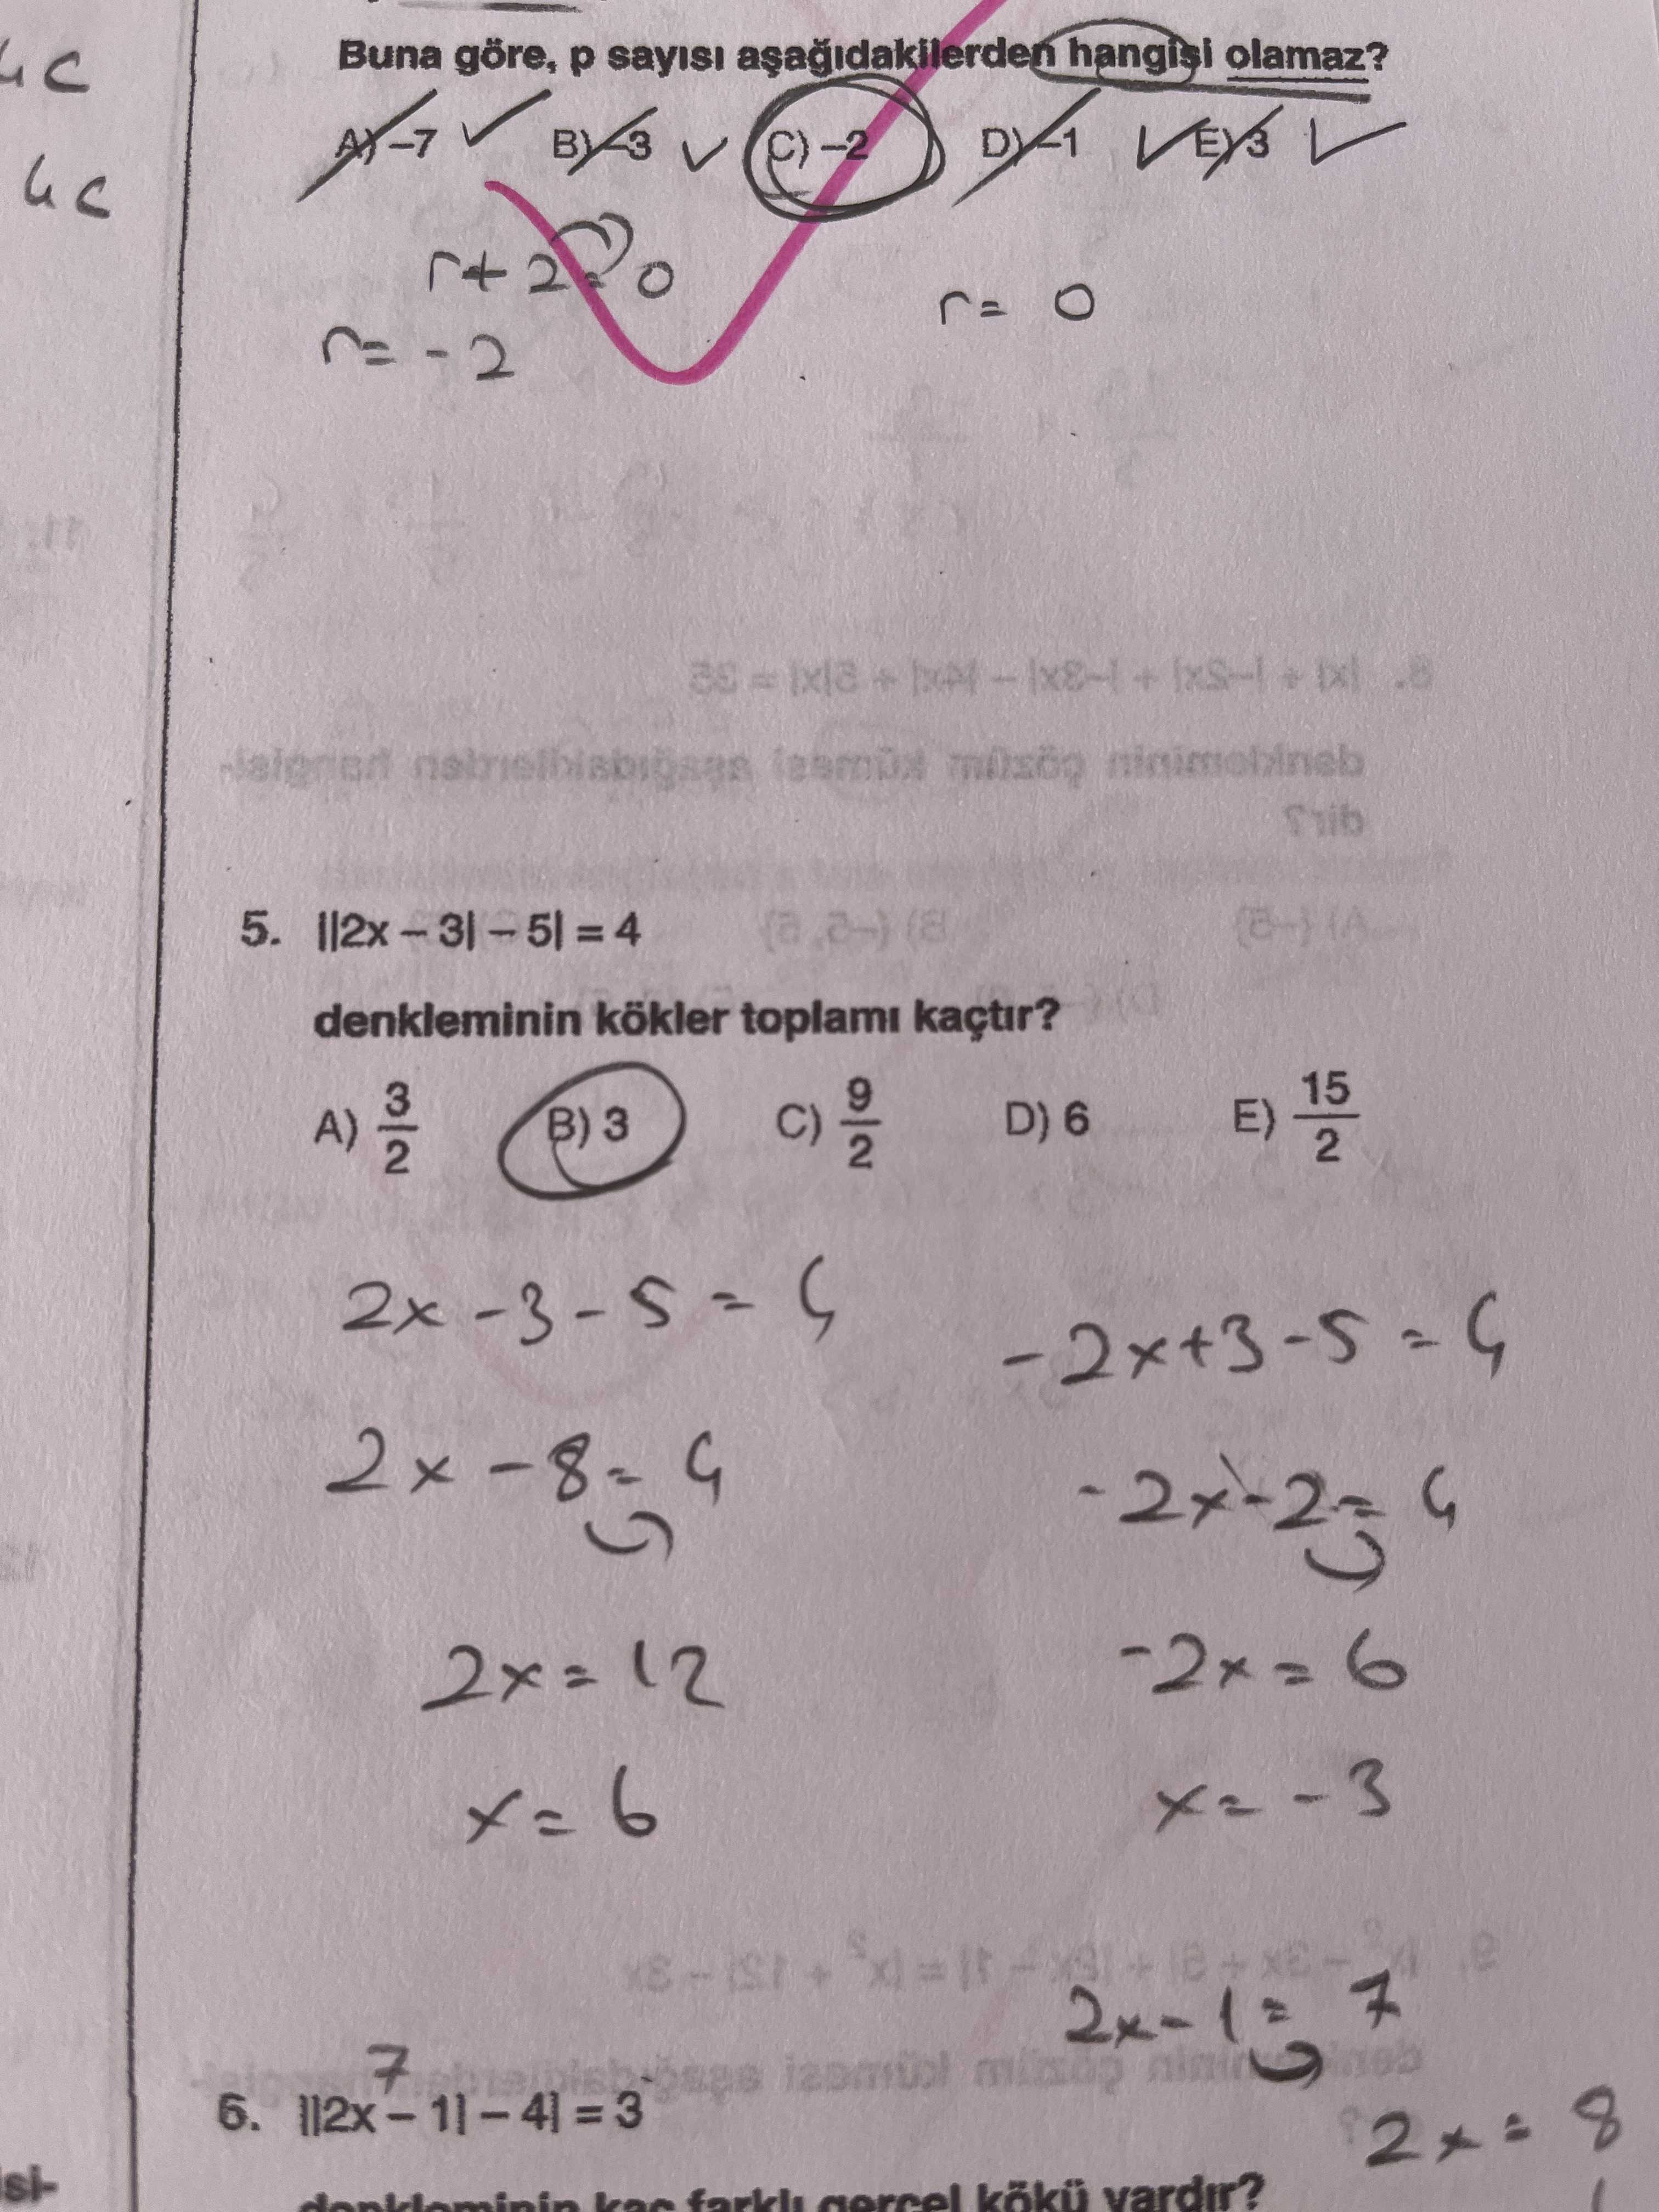 4c
4c
Buna göre, p sayısı aşağıdakilerden hangisi olamaz?
A) –7 B) –3 C) –2 D) –1 E) 3
r+2=0
r=0
r=-2
5. ||2x – 3| – 5| = 4
denkleminin kökler toplamı kaçtır?
A) 3/2 B) 3 C) 9/2 D) 6 E) 15/2
2x-3-5=4
-2x+3-5=4
2x-8=4
-2x-2=4
2x=12
-2x=6
x=6
x=-3
2x-1=7
7
6. ||2x – 1| – 4| = 3
2x=8
denkleminin kaç farklı gerçel kökü vardır?
isi-